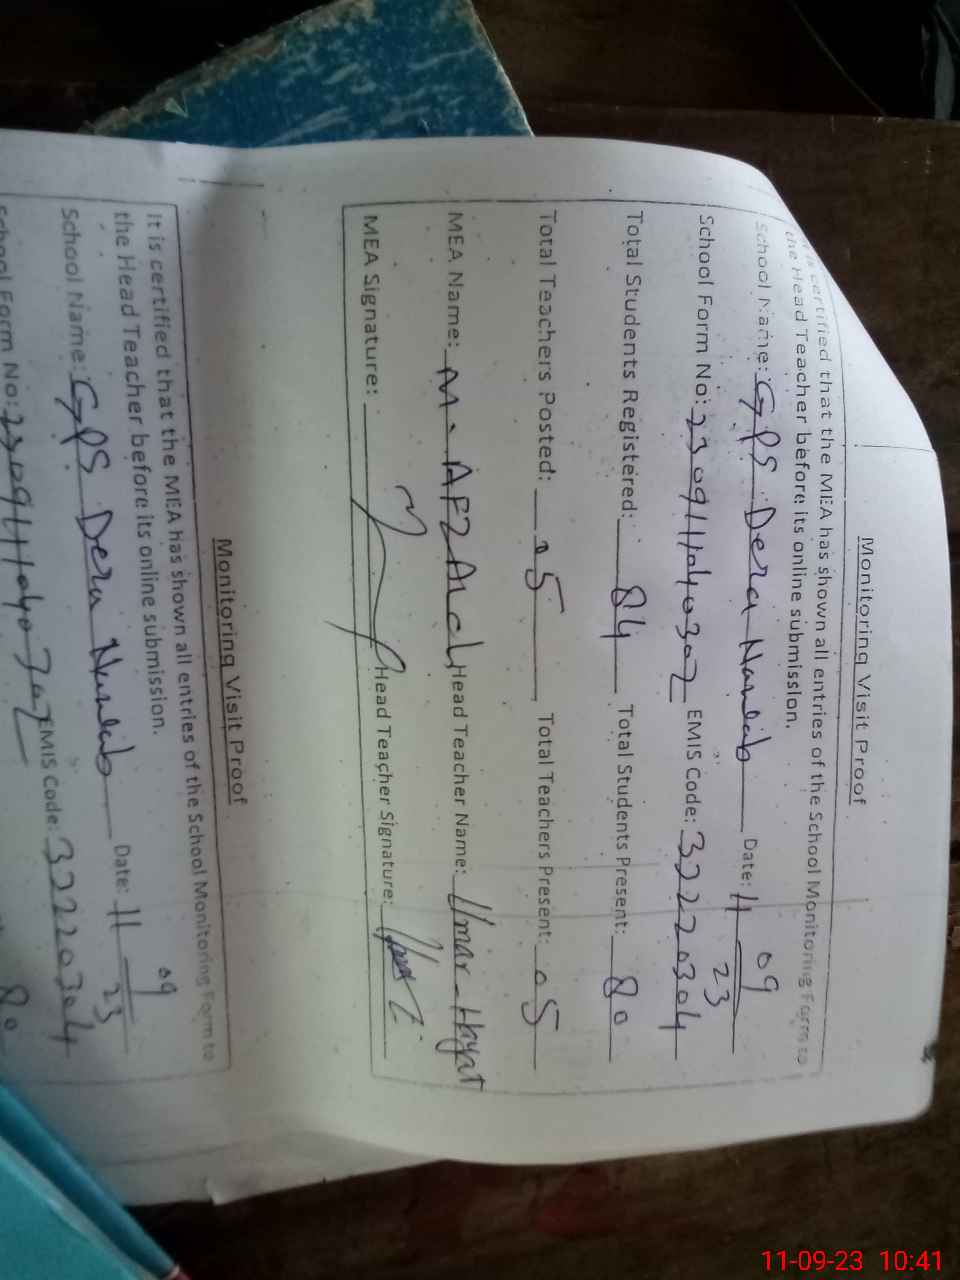 Monitoring Visit Proof
It is certified that the MEA has shown all entries of the School Monitoring Form to
the Head Teacher before its online submission.
School Name: GPS Dera Nawab Date: 11 09 23
School Form No: EMIS Code: 32220304
Total Students Registered: 84 Total Students Present: 80
Total Teachers Posted: 05 Total Teachers Present: 05
MEA Name: M. AFZAL Head Teacher Name: Umar Hayat
MEA Signature: Head Teacher Signature:
Monitoring Visit Proof
It is certified that the MEA has shown all entries of the School Monitoring Form to
the Head Teacher before its online submission.
School Name: GPS Dera Nawab Date: 11 09 23
School Form No: EMIS Code: 32220304
80
11-09-23 10:41